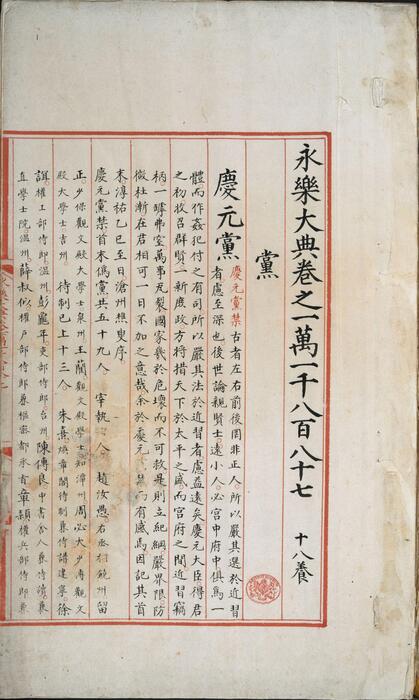 永樂大典卷之一萬一千八百八十七 十八養
黨
慶元黨 慶元黨禁古者左右前後罔非正人。所以嚴其選於近習
者慮至深也後世論親賢士遠小人。必宮中府中俱爲一
體而作姦犯付之有司所以嚴其法於近習者慮益遠矣慶元大臣得君
之初收召群賢一新庶政方將措天下於太平之盛而宮府之間近習竊
柄一罅弗窒萬事瓦裂國家幾於危壞而不可救是則立紀綱嚴界限防
微杜漸在君相可一日不加之意哉余於慶元 而有感焉因記其首
末淳祐乙巳至日滄州樵叟序
慶元黨禁首末僞黨共五十九人 宰執 人 趙汝愚右丞相饒州 留
正少保觀文殿大學士泉州 王藺觀文殿學士知潭州 周必大少傅觀文
殿大學士吉州 待制已上十三人 朱熹煥章閣待制兼侍講建寧 徐
誼權工部侍郎溫州 彭龜年吏部侍郎台州 陳傅良中書舍人兼侍讀兼
直學士院溫州 薛叔似權戶部侍郎兼樞密都承旨 章穎權兵部侍郎兼